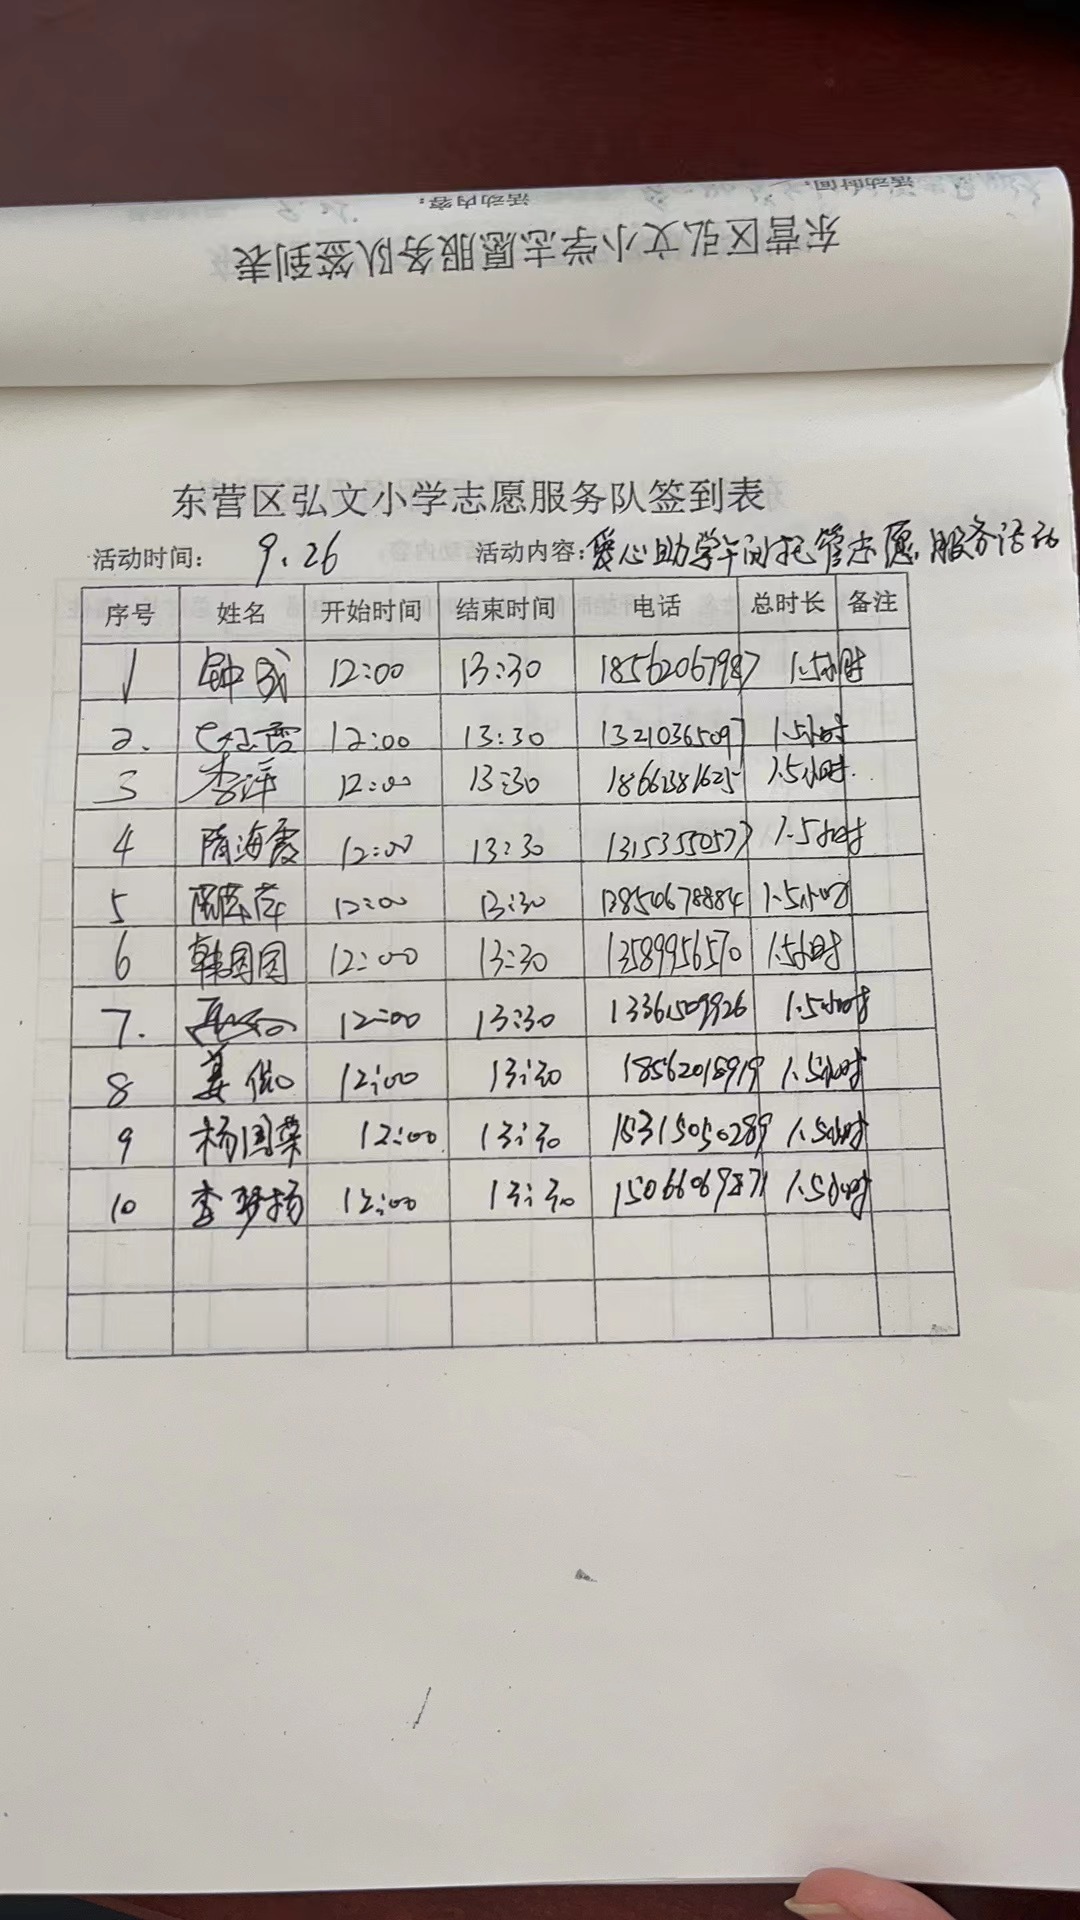 东营区弘文小学志愿服务队签到表
东营区弘文小学志愿服务队签到表
活动时间： 9.26 活动内容：爱心助学午间托管志愿服务活动
序号 姓名 开始时间 结束时间 电话 总时长 备注
1 钟 12:00 13:30 18562067987 1.5小时
2. 12:00 13:30 13210365097 1.5小时
3 李萍 12:00 13:30 18661381625 1.5小时.
4 隋海霞 12:00 13:30 13153550577 1.5小时
5 12:00 13:30 1.5小时
6 韩园园 12:00 13:30 13589956570 1.5小时
7. 12:00 13:30 13361509926 1.5小时
8 姜 12:00 13:30 18562018919 1.5小时
9 杨国荣 12:00 13:30 15315050289 1.5小时
10 李梦扬 12:00 13:30 1.5小时